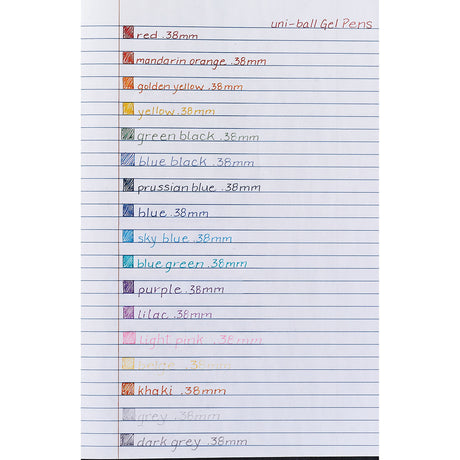 uni-ball Gel Pens
red .38mm
mandarin orange .38mm
golden yellow .38mm
yellow .38mm
green black .38mm
blue black .38mm
prussian blue .38mm
blue .38mm
sky blue .38mm
blue green .38mm
purple .38mm
lilac .38mm
light pink .38mm
beige .38mm
khaki .38mm
grey .38mm
dark grey .38mm